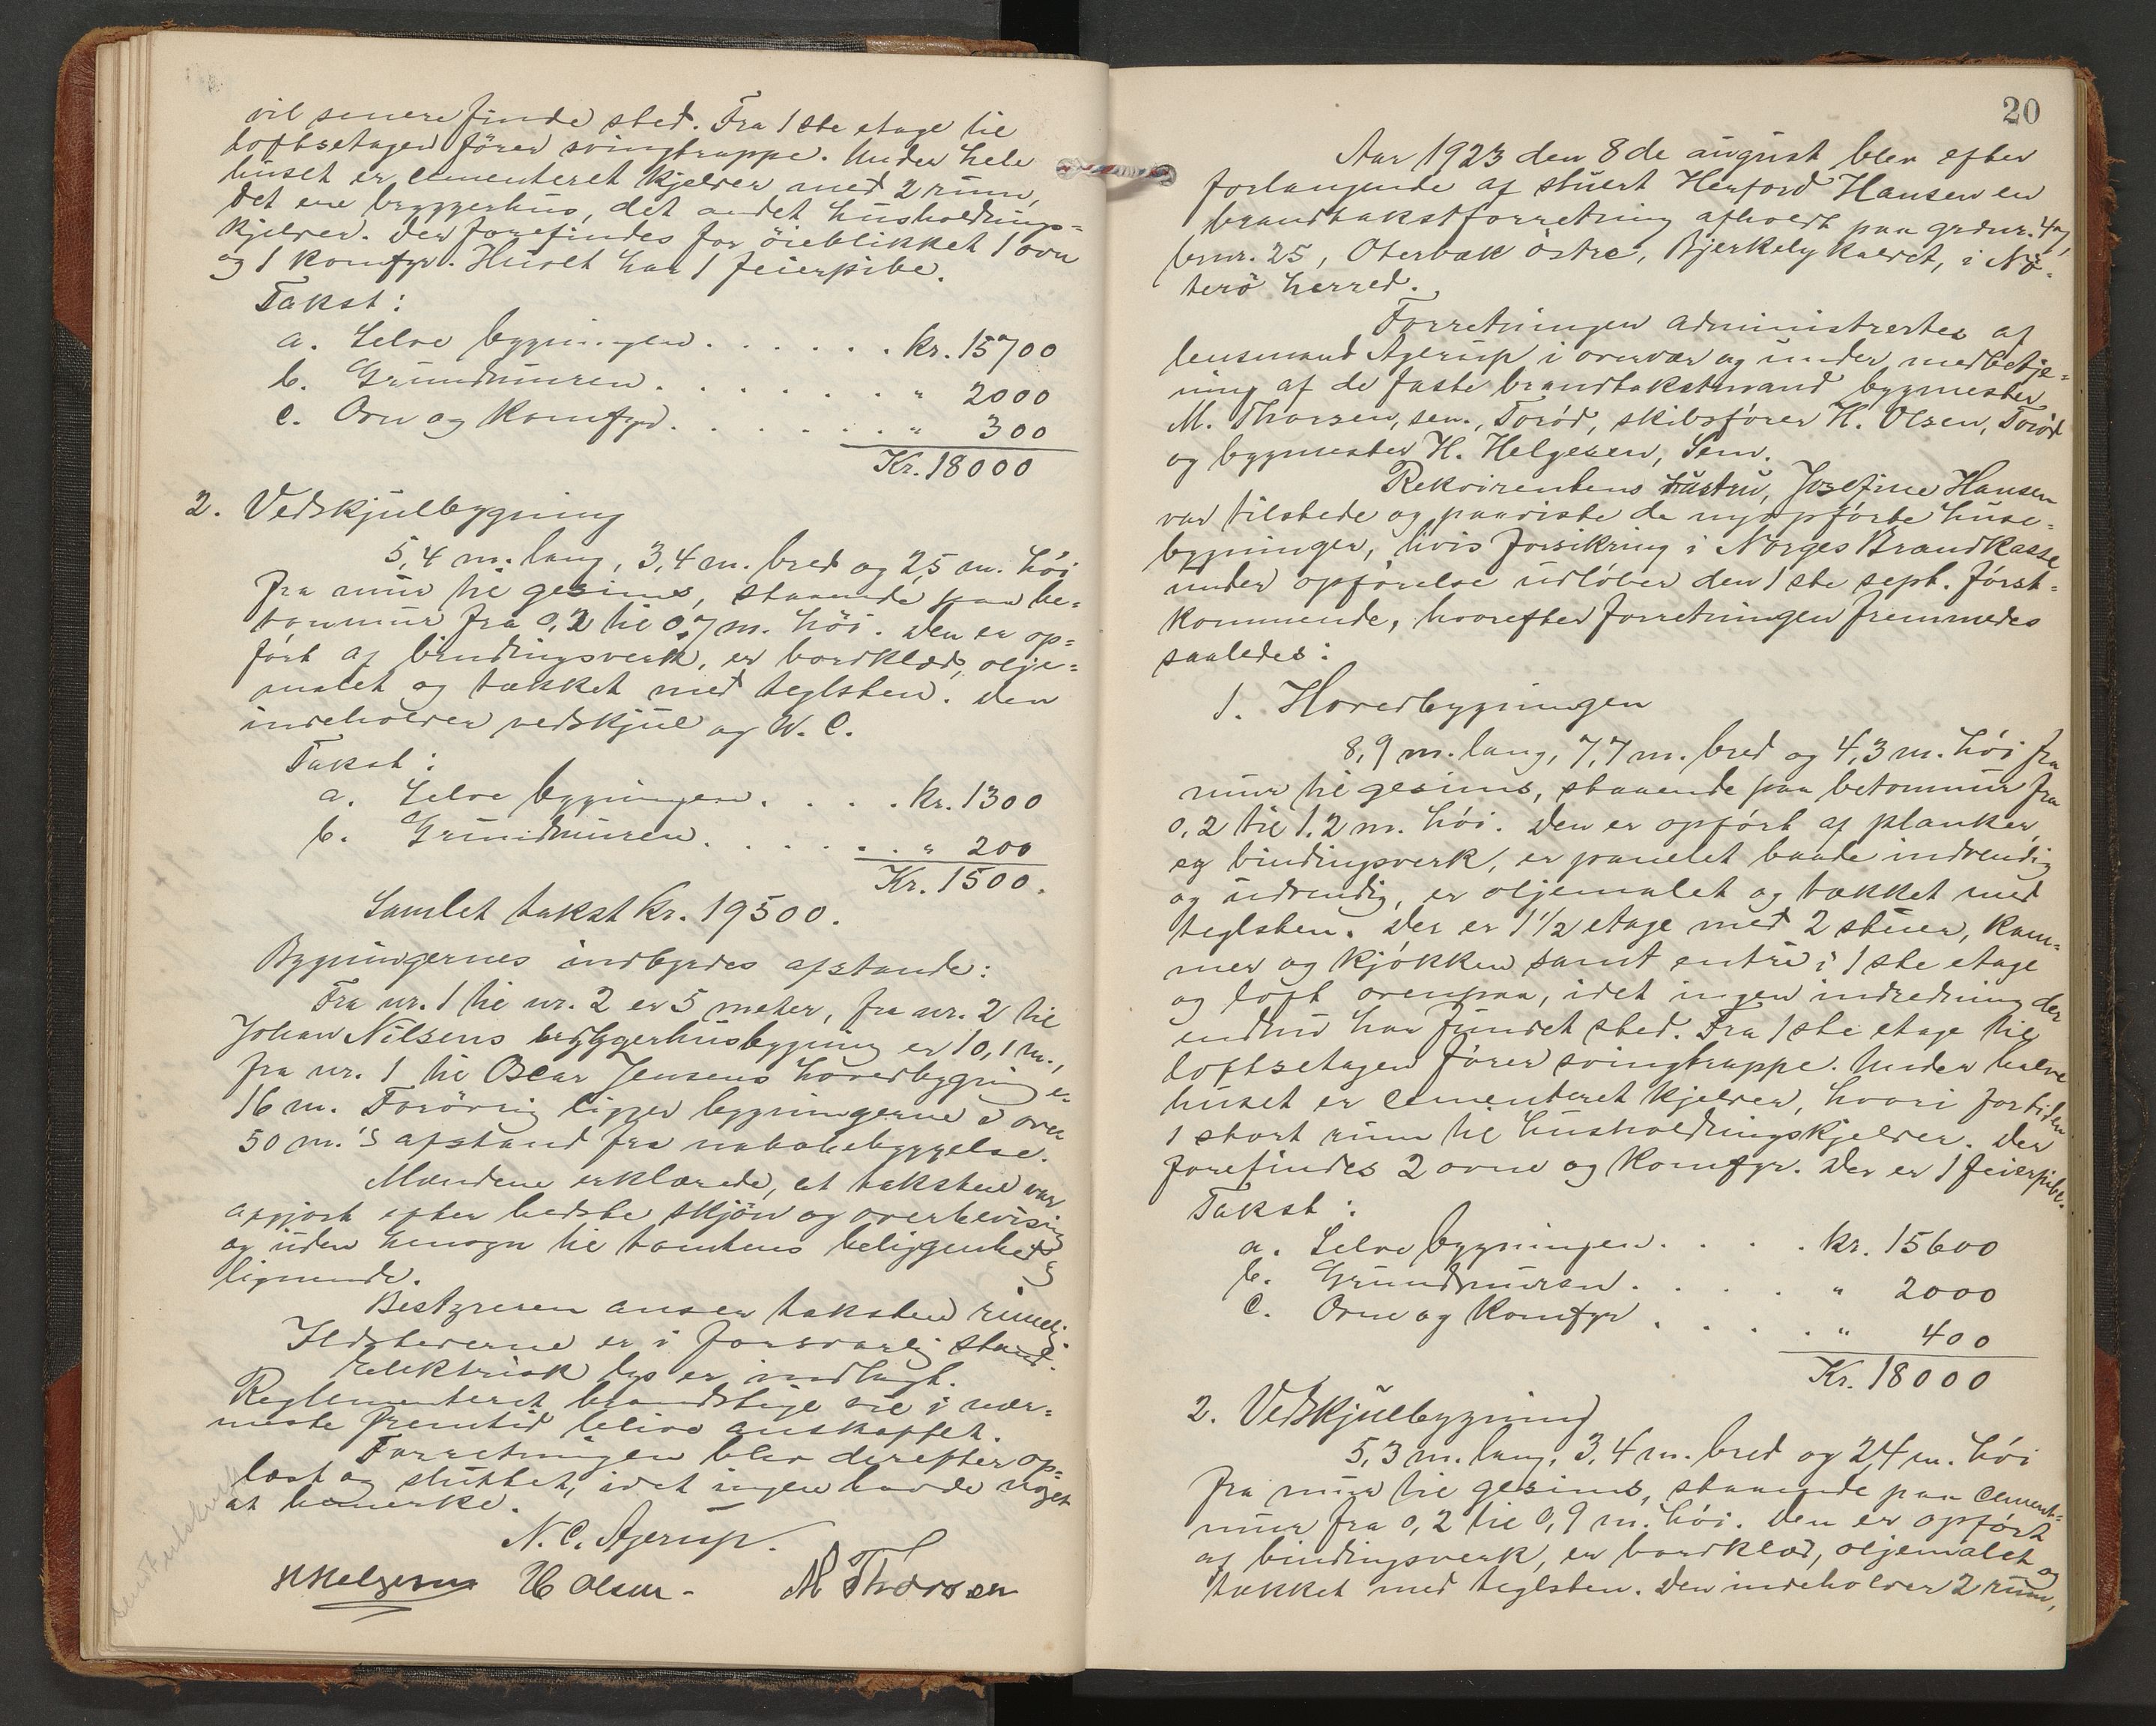 vil senere finde sted. Fra 1ste etage til
loftsetagen fører svingtrappe. Under hele
huset er cementeret kjelder med 2 rum,
det ene bryggerhus, det andet husholdnings-
kjelder. Der forefindes for øieblikket 1 ovn
og 1 komfyr. Huset har 1 feierpibe.
Takst:
a. Selve bygningen . . . . . . kr. 15700
b. Grundmuren . . . . . . " 2000
c. Ovn og komfyr . . . . . . " 300
Kr. 18000
2. Vedskjulbygning
5,4 m. lang, 3,4 m. bred og 2,5 m. høi
fra mur til gesims, staaende paa be-
tonmur fra 0,2 til 0,7 m. høi. Den er op-
ført af bindingsverk, er bordklæd, olje-
malet og tækket med teglsten. Den
indeholder vedskjul og W. C.
Takst:
a. Selve bygningen . . . . kr. 1300
b. Grundmuren . . . . . . " 200
Kr. 1500.
Samlet takst kr. 19500.
Bygningernes indbyrdes afstande:
Fra nr. 1 til nr. 2 er 5 meter, fra nr. 2 til
Johan Nilsens bryggerhusbygning er 10,1 m.,
fra nr. 1 til Oscar Jensens hovedbygning er
16 m. Forøvrig ligger bygningerne i over
50 m.'s afstand fra nabobebyggelse.
Mændene erklærede, at taksten var
afgjort efter bedste skjøn og overbevisning
og uden hensyn til tomtens beliggenhed og
lignende.
Bestyreren anser taksten rimelig.
Ildstederne er i forsvarlig stand.
Elektrisk lys er indlagt.
Reglementeret brandstige vil i nær-
meste fremtid blive anskaffet.
Forretningen blev derefter op-
læst og sluttet, idet ingen havde noget
at bemerke.
N. C. Agerup.
H Helgesen H Olsen - M Thorsen
20
Aar 1923 den 8de august blev efter
forlangende af stuert Herford Hansen en
brandtakstforretning afholdt paa grdnr. 4,
brnr. 25, Oterbæk østre, Bjerkely kaldet, i Nø-
terø herred.
Forretningen administrertes af
lensmand Agerup i overvær og under medbetje-
ning af de faste brandtakstmænd bygmester
M. Thorsen, sen., Torød, skibsfører H. Olsen, Torød
og bygmester H. Helgesen, Sem.
Rekvirentens hustru, Josefine Hansen
var tilstede og paaviste de nyopførte huse-
bygninger, hvis forsikring i Norges Brandkasse
under opførelse udløber den 1ste sept. først-
kommende, hvorefter forretningen fremmedes
saaledes:
1. Hovedbygningen
8,9 m. lang, 7,7 m. bred og 4,3 m. høi fra
mur til gesims, staaende paa betonmur fra
0,2 til 1,2 m. høi. Den er opført af planker
og bindingsverk, er panelet baade indvendig
og udvendig, er oljemalet og tækket med
teglsten. Der er 1 1/2 etage med 2 stuer, kam-
mer og kjøkken samt entre i 1ste etage
og loft ovenpaa, idet ingen indredning der
endnu har fundet sted. Fra 1ste etage til
loftsetagen fører svingtrappe. Under halve
huset er cementeret kjelder, hvori fortiden
1 stort rum til husholdningskjelder. Der
forefindes 2 ovne og komfyr. Der er 1 feierpibe.
Takst:
a. Selve bygningen . . . . kr. 15600
b. Grundmuren . . . . " 2000
c. Ovne og komfyr . . . . " 400
Kr. 18000
2. Vedskjulbygning
5,3 m. lang, 3,4 m. bred og 2,4 m. høi
fra mur til gesims, staaende paa cement-
mur fra 0,2 til 0,9 m. høi. Den er opført
af bindingsverk, er bordklæd, oljemalet og
tækket med teglsten. Den indeholder 2 rum,